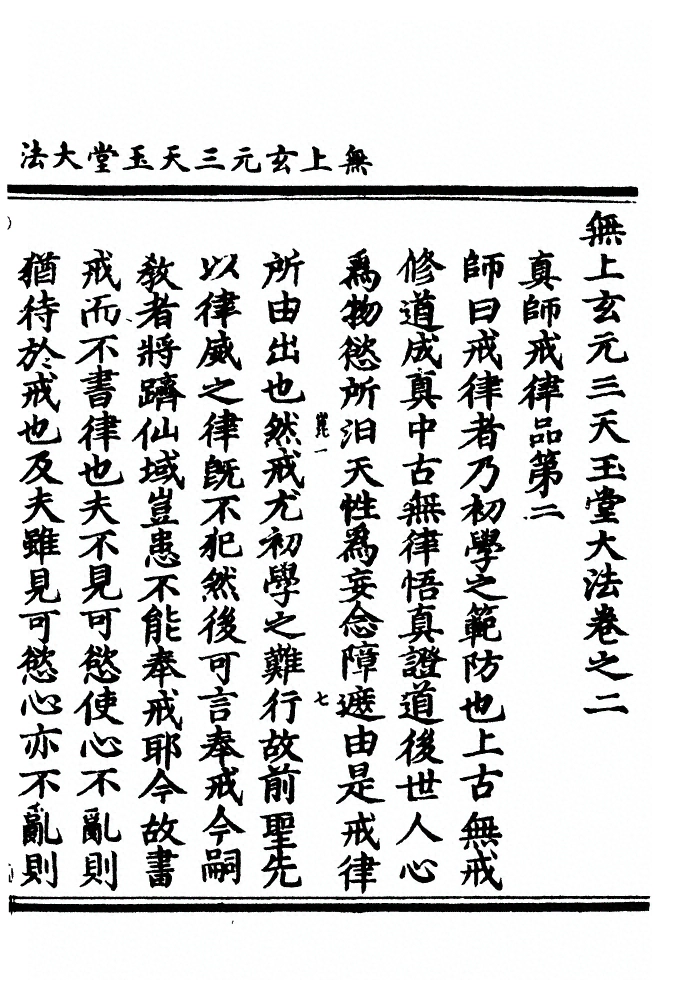 無上玄元三天玉堂大法
無上玄元三天玉堂大法卷之二
真師戒律品第二
師曰戒律者乃初學之範防也上古無戒
修道成真中古無律悟真證道後世人心
爲物慾所汩天性爲妄念障遮由是戒律
崑一
七
所由出也然戒尤初學之難行故前聖先
以律威之律旣不犯然後可言奉戒今嗣
敎者將躋仙域豈患不能奉戒耶今故書
戒而不書律也夫不見可慾使心不亂則
猶待於戒也及夫雖見可慾心亦不亂則